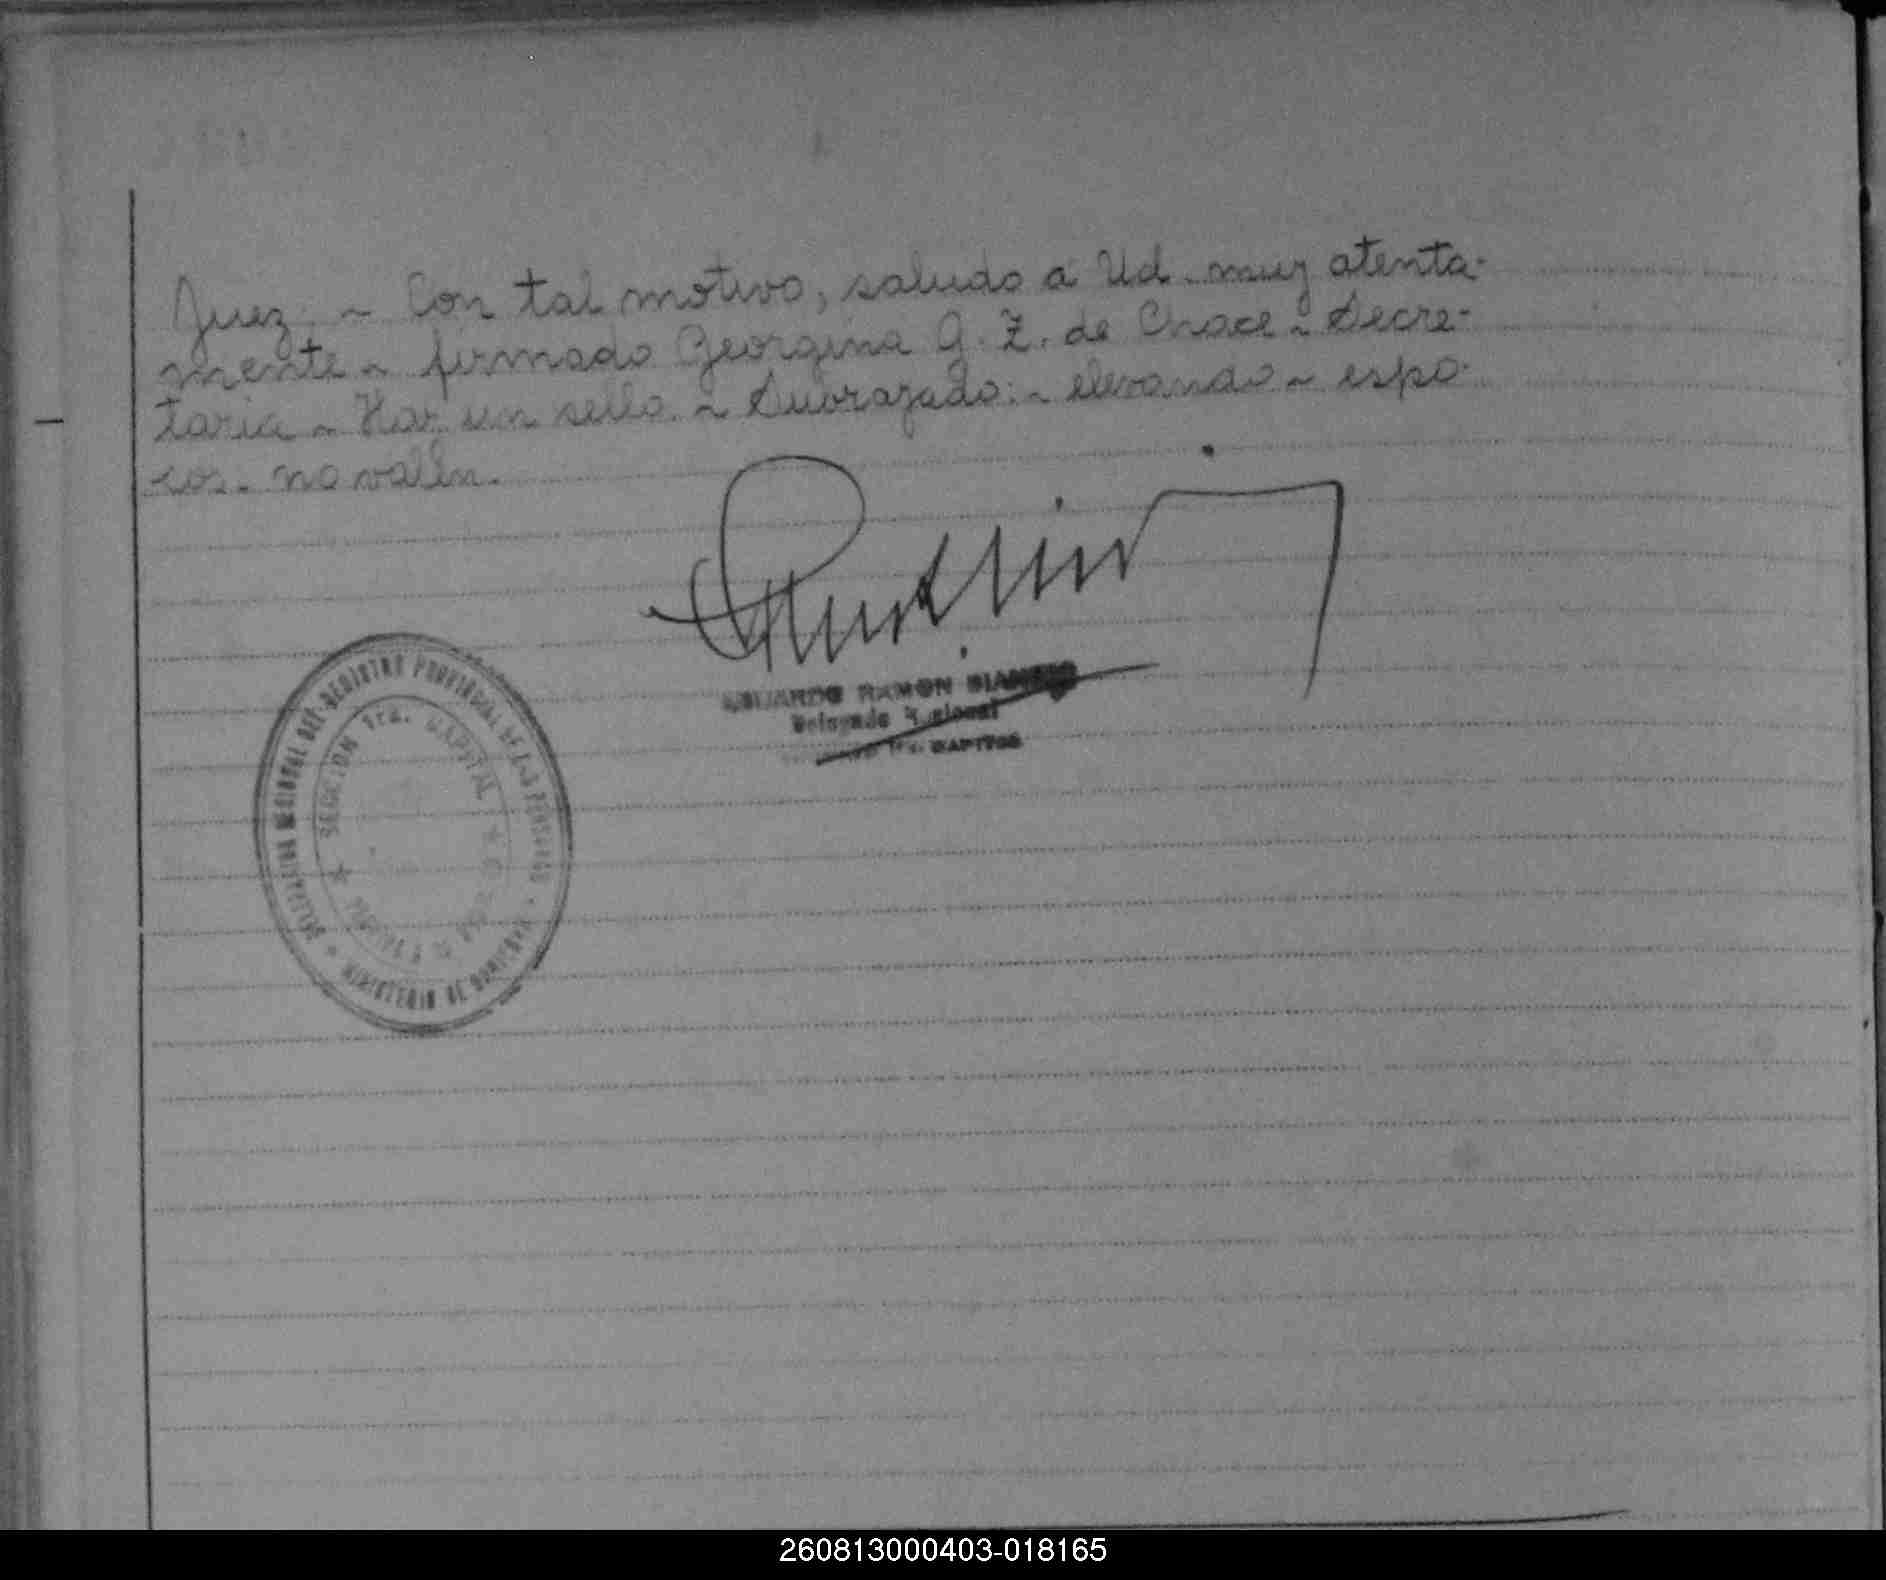 Juez. ~ Con tal motivo, saludo a Ud. muy atenta-
mente ~ firmado Georgina G. Z. de Chace ~ Secre-
taria ~ Hay un sello. ~ Subrayado: ~ elevando ~ espo-
sos. no valen.
EDUARDO RAMON
Delegado Regional
CAPITAL
DELEGACION REGIONAL DEL REGISTRO PROVINCIAL DE LAS PERSONAS
SECCION 1ra. CAPITAL
MINISTERIO DE GOBIERNO
260813000403-018165